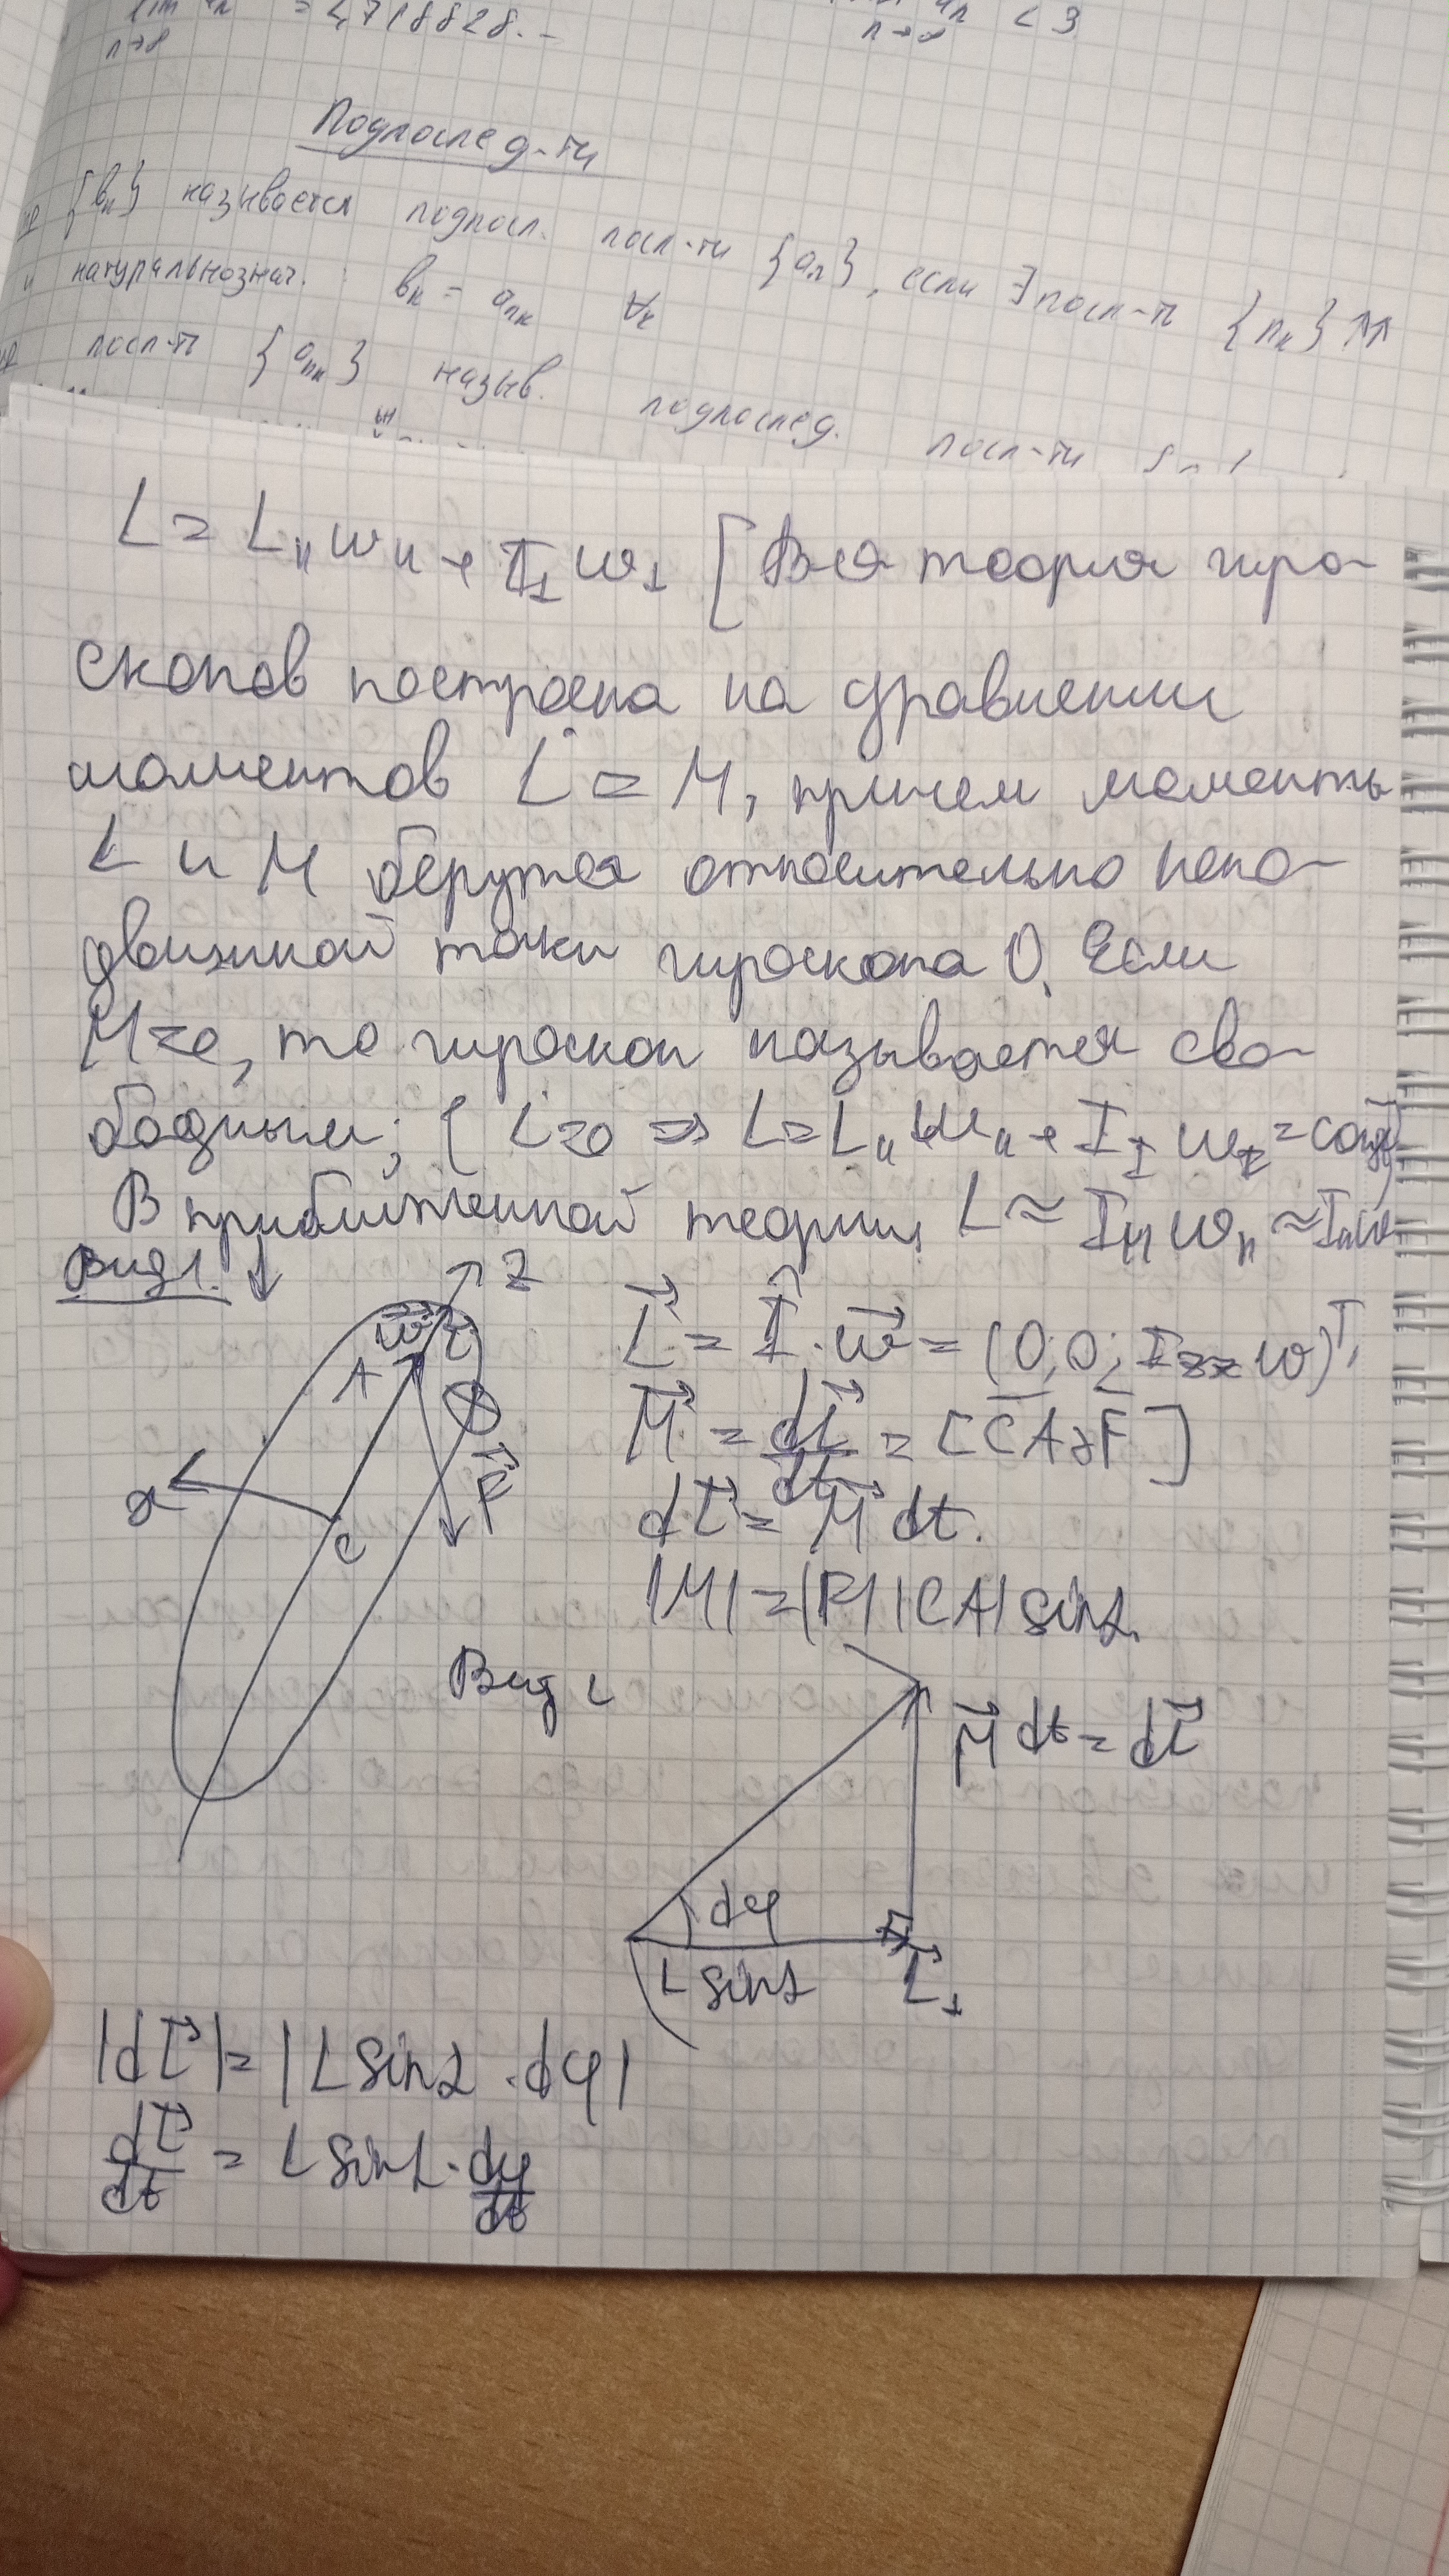 = 2,718828...
n→∞
n→∞ < 3
Подпослед-ти
{bₖ} называется подпосл. посл-ти {aₙ}, если ∃ посл-ть {nₖ} ↑↑
и натуральнознач. : bₖ = aₙₖ ∀ₖ
посл-ть {aₙₖ} назыв. подпослед. посл-ти
L = L_∥ ω_∥ + I_⊥ ω_⊥ [Вся теория гиро-
скопов построена на уравнении
моментов L̇ = M, причем моменты
L и M берутся относительно непо-
движной точки гироскопа O. Если
M=0, то гироскоп называется сво-
бодным; [L=0 ⇒ L=L_∥ ω_∥ + I_⊥ ω_⊥ = const]
В приближенной теории L ≈ I_∥ ω_∥ ≈ I_∥ ω
Вид 1. ↓
Z
ω⃗
A
F⃗
x
C
L⃗ = Î · ω⃗ = (0; 0; I_zz ω)ᵀ;
M⃗ = dL⃗/dt = [CA × F]
dL⃗ = M⃗ dt.
|M| = |F| |CA| sin α.
Вид 1
M⃗ dt = dL⃗
dφ
L sin α
L⃗_⊥
|dL⃗| = |L sin α · dφ|
dL⃗/dt = L sin α · dφ/dt